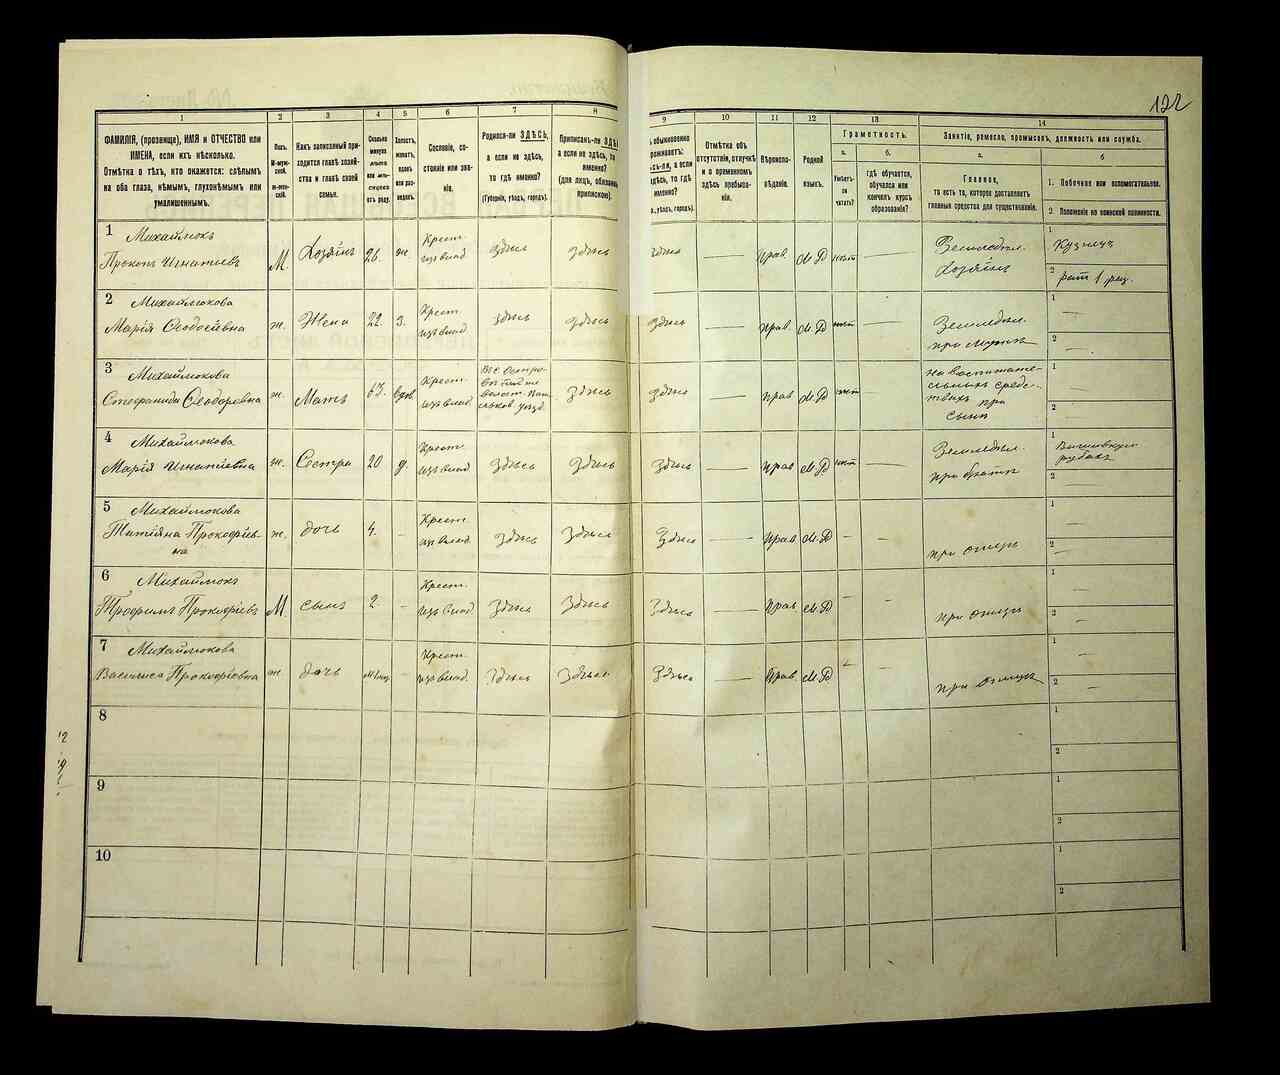 122
1
2
3
4
5
6
7
8
ФАМИЛІЯ, (прозвище), ИМЯ и ОТЧЕСТВО или
ИМЕНА, если ихъ нѣсколько.
Отмѣтка о тѣхъ, кто окажется: слѣпымъ
на оба глаза, нѣмымъ, глухонѣмымъ или
умалишеннымъ.
Полъ.
М-муж-
ской.
ж-жен-
скій.
Какъ записанный при-
ходится главѣ хозяй-
ства и главѣ своей
семьи.
Сколько
минуло
лѣтъ
или мѣ-
сяцевъ
отъ роду.
Холостъ,
женатъ,
вдовъ
или раз-
веденъ.
Сословіе, со-
стояніе или зва-
ніе.
Родился-ли ЗДѢСЬ,
а если не здѣсь,
то гдѣ именно?
(Губернія, уѣздъ, городъ).
Приписанъ-ли ЗДѢ
а если не здѣсь, то
именно?
(для лицъ, обязанн
припискою).
9
10
11
12
13
14
обыкновенно
роживаетъ:
сь-ли, а если
здѣсь, то гдѣ
именно?
., уѣздъ, городъ).
Отмѣтка объ
отсутствіи, отлучкѣ
и о временномъ
здѣсь пребыва-
ніи.
Вѣроиспо-
вѣданіе.
Родной
языкъ.
Грамотность.
а.
б.
Умѣетъ-
ли
читать?
гдѣ обучается,
обучался или
кончилъ курсъ
образованія?
Занятіе, ремесло, промыселъ, должность или служба.
а.
б
Главное,
то есть то, которое доставляетъ
главныя средства для существованія.
1. Побочное или вспомогательное.
2. Положеніе по воинской повинности.
1 Михаймюкъ
Прокопъ Игнатіевъ М. Хозяинъ 26. ж. Крест. изъ влад. здѣсь здѣсь здѣсь — Прав. М.Р нѣт — Земледѣл. Хозяинъ
1 Кузнецъ
2 рат 1 раз.
2 Михаймюкова
Марія Ѳеодосіевна ж. Жена 22. з. Крест. изъ влад. здѣсь здѣсь здѣсь — Прав. М.Р нѣт — Земледѣл. при мужѣ
1 —
2 —
3 Михаймюкова
Стефанида Ѳеодоровна ж. Мать 63. вдов. Крест. изъ влад. здѣсь здѣсь — Прав М.Р нѣт — на воспитате-
льныхъ средс-
твахъ при
сынѣ
1 —
2 —
4 Михаймюкова
Марія Игнатіевна ж. Сестра 20 д. Крест. изъ влад. Здѣсь Здѣсь Здѣсь — Прав М.Р нѣт — Земледѣл. при братѣ
1 рубахъ
2 —
5 Михаймюкова
Татіяна Прокофіев-
на ж. дочь 4. — Крест. изъ влад. Здѣсь Здѣсь Здѣсь — Прав М.Р — — при отцѣ
1 —
2 —
6 Михаймюкъ
Трофимъ Прокофіевъ М. сынъ 2. — Крест. изъ влад. Здѣсь Здѣсь Здѣсь — Прав М.Р — — при отцѣ
1 —
2 —
7 Михаймюкова
Василиса Прокофіевна ж дочь — Крест. изъ влад. Здѣсь Здѣсь Здѣсь — Прав М.Р — — при отцѣ
1 —
2 —
8
1
2
9
1
2
10
1
2